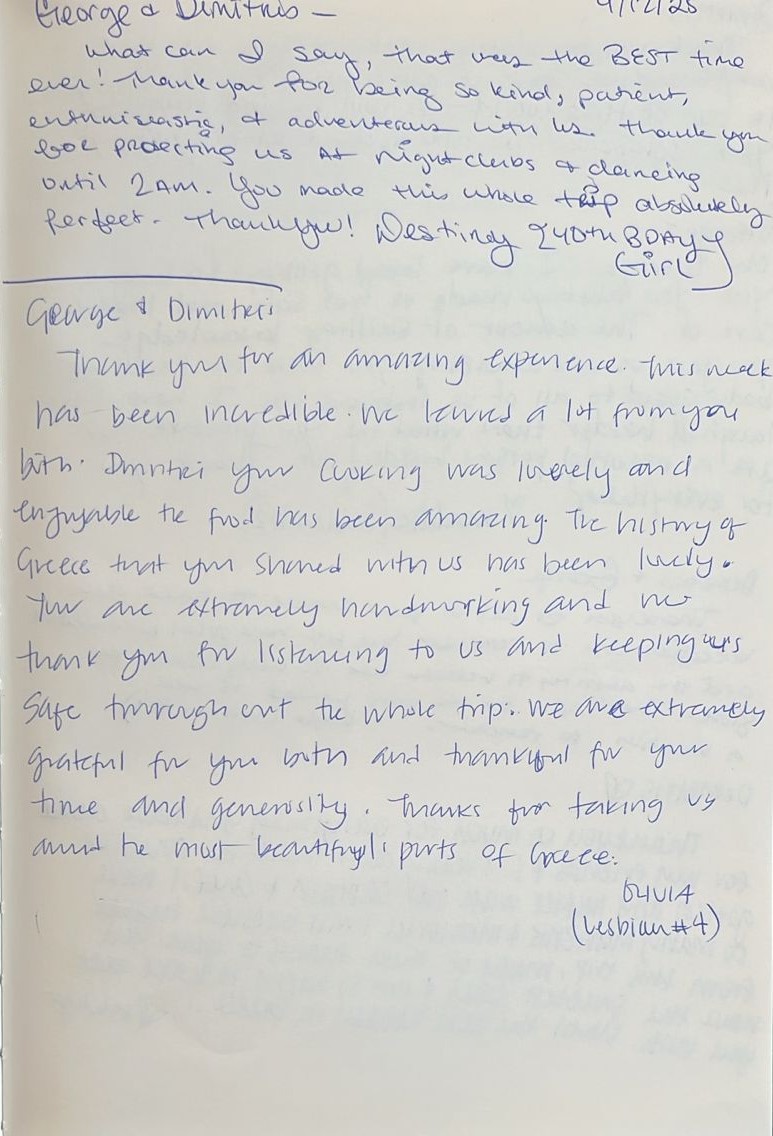 George & Dimitris —
9/12/25
What can I say, that was the BEST time
ever! Thank you for being so kind, patient,
enthusiastic, & adventerous with us. Thank you
for protecting us at nightclubs & dancing
until 2AM. You made this whole trip absolutely
perfect. Thank you! Destiny {40th BDAY
Girl}
George & Dimitris
Thank you for an amazing experience. This week
has been incredible. We learned a lot from you
both. Dimitri your cooking was lovely and
enjoyable the food has been amazing. The history of
Greece that you shared with us has been lovely.
You are extremely hardworking and we
thank you for listening to us and keeping us
safe through out the whole trip. We are extremely
grateful for you both and thankful for your
time and generosity. Thanks for taking us
around the most beautiful parts of Greece.
OLIVIA
(Lesbian #4)